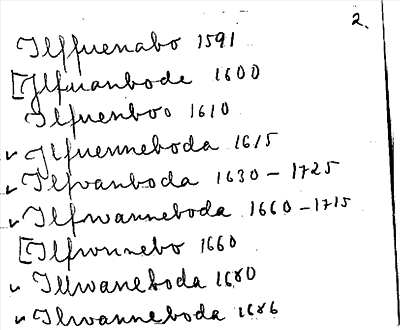 2.
Ilffuenabo 1591
[Jlfuanbode 1600
Ilfuenboo 1610
✓ Jlfuenneboda 1615
✓ Ilfvanboda 1630 - 1725
✓ Ilfwanneboda 1660 - 1715
[Ilfwnnebo 1660
✓ Illwaneboda 1680
✓ Ilwanneboda 1686